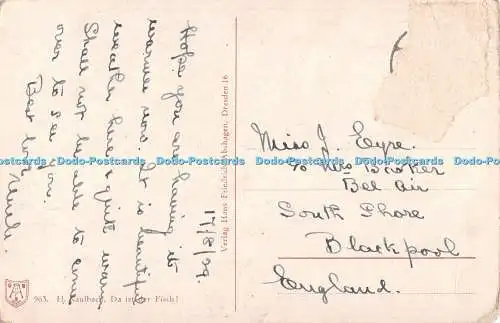 17/8/29.
Hope you are having it
warmer now. It is beautiful
weather here & quite warm
Shall not be able to come
over to see you.
Best love
Uncle.
Miss J. Eyre.
c/o Mrs Booker
Bel Air
South Shore
Blackpool
England.
Verlag Hans Friedrich Abshagen, Dresden-16
963. H. Kaulbach. Da ist der Fisch!
Dodo-Postcards Dodo-Postcards Dodo-Postcards Dodo-Postcards Dodo-Postcards